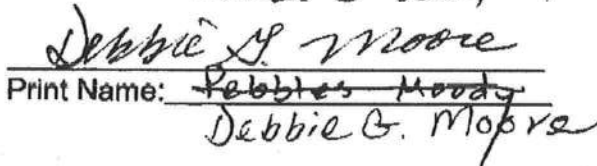 Debbie G. Moore
Print Name: Pebbles Moody
Debbie G. Moore